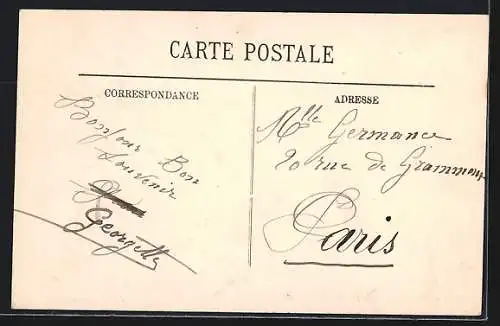 CARTE POSTALE
CORRESPONDANCE
Bonjour Bon
Souvenir
Georgette
ADRESSE
Mlle Germance
20 rue de Grammont
Paris